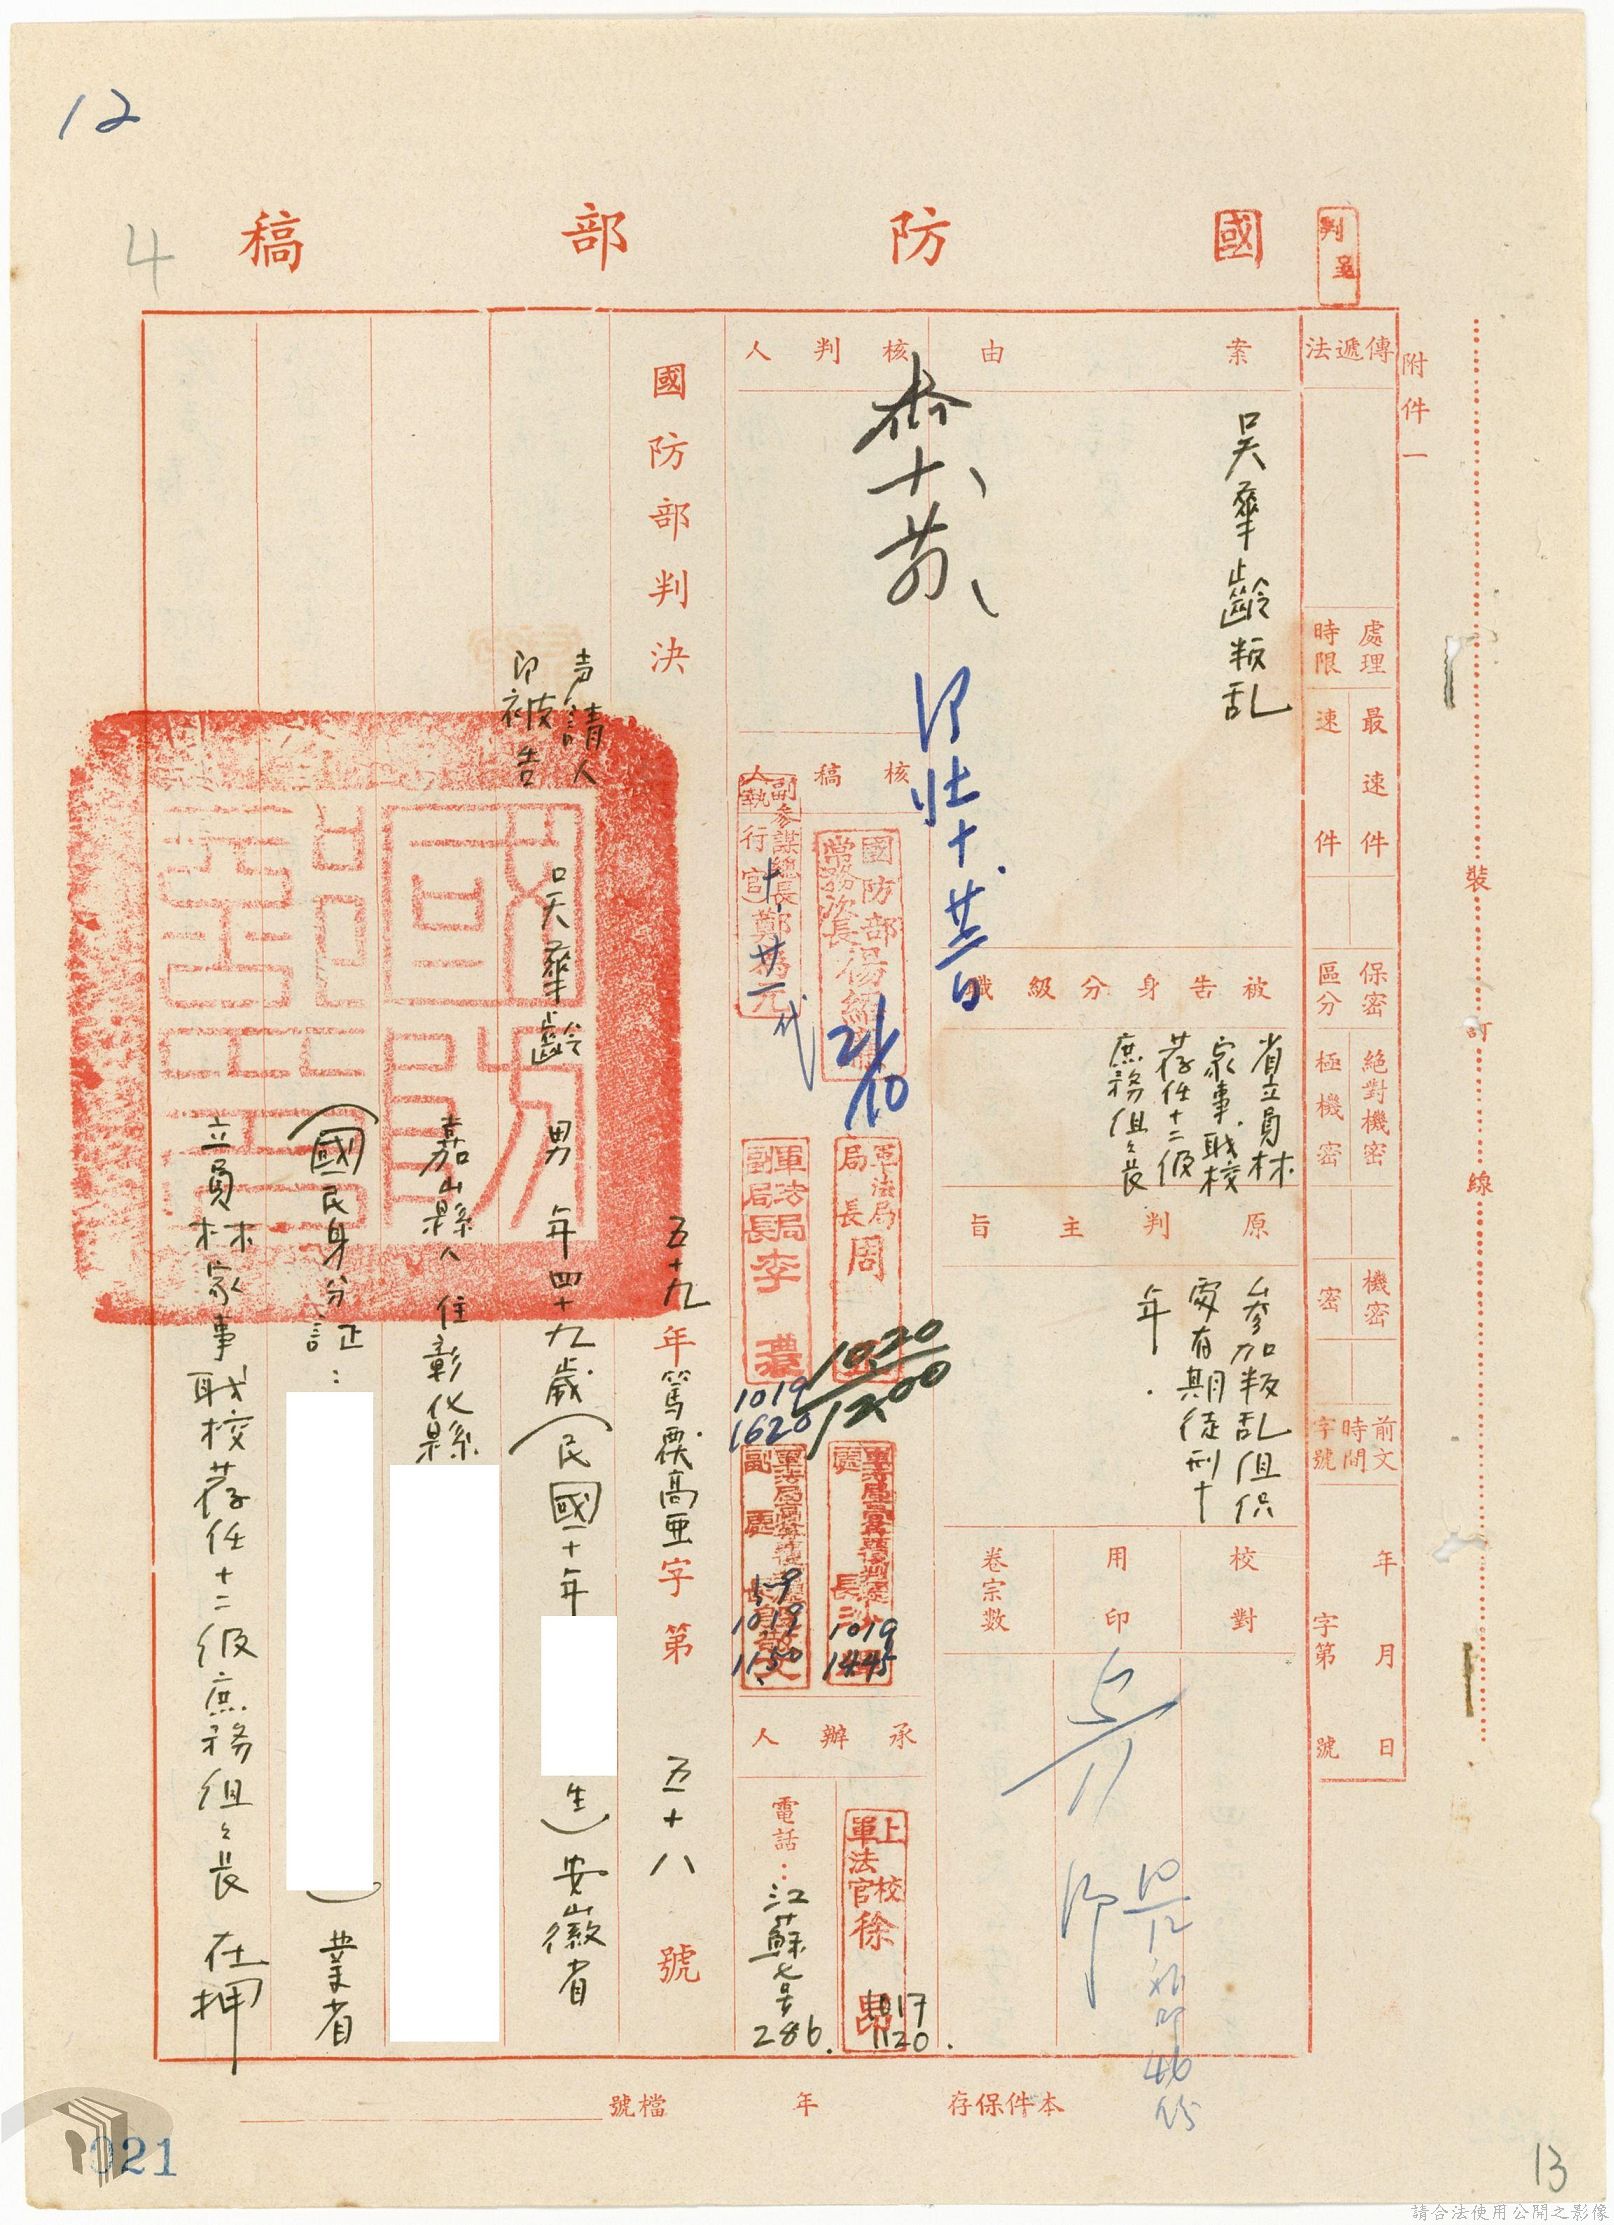 12
4
國防部稿
附件一
傳遞法
處理時限
最速件
速件
保密區分
絕對機密
極機密
機密
密
前文時間字號
年月日
字第號
裝訂線
案由
吴華齡叛乱
被告身分級職
省立員林
家事職校
荐任十二級
庶務組々長
原判主旨
參加叛乱组织
處有期徒刑十
年.
校對
用印
卷宗數
核判人
核稿人
國防部常務次長楊
21/10
副參謀總長執行官鄭為元
軍法局局長周
1020
1200
軍法局副局長李濃
1019
1620
1019
1445
1019
1150
承辦人
上校軍法官徐
1017
1120.
電話:江蘇七号286.
國防部判決
五十九年篤覆高亜字第五十八號
声請人
即被告
吴華齡男年四十九歲(民國十年
生)安徽省
嘉山縣人住彰化縣
(國民身分証:
)業省
立員林家事職校荐任十二級庶務組々長在押
本件保存年
檔號
021
13
請合法使用公開之影像